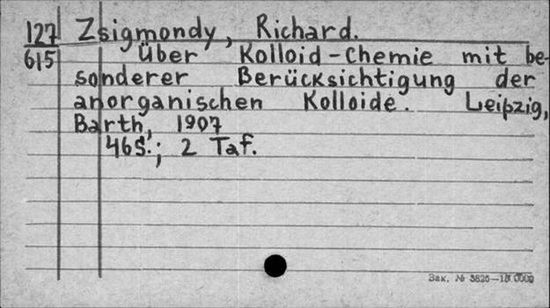 127 Zsigmondy, Richard.
615 Über Kolloid-Chemie mit be-
sonderer Berücksichtigung der
anorganischen Kolloide. Leipzig,
Barth, 1907
46S.; 2 Taf.
Зак. № 3825—